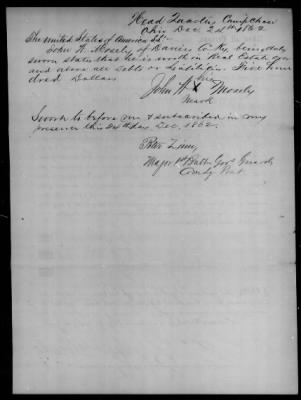 Head Quarters Camp Chase
Ohio Dec 24th 1862
The United States of America
John H. Mosely of Davies Co Ky, being duly
sworn states that he is worth in Real Estate over
and above all debts or liabilities Five hun
dred Dollars
his
John H X Mosely
mark
Sworn to before me & subscribed in my
presence this 24th day Dec, 1862.
Peter Zinn
Major 1st Battn Govs Guards
Comdg Post